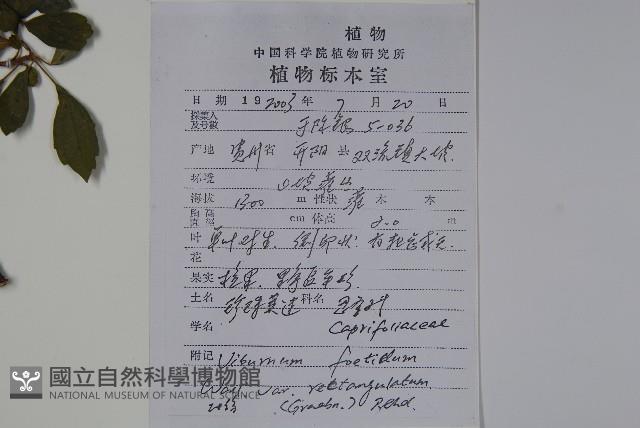 植物
中国科学院植物研究所
植物标本室
日期 19 2003年 7月20日
採集人
及号数 5-036
产地 贵州省 开阳县 双流镇大坡
环境 山坡灌丛
海拔 1300 m 性状 灌木 木
胸高
直径 cm 体高 2.0 m
叶 单叶对生
花
果实 核果
土名 珍珠荚迷 科名 忍冬科
学名 Caprifoliaceae
附记 Viburnum foetidum
Wall var. rectangulatum
(Graebn.) Rehd.
國立自然科學博物館
NATIONAL MUSEUM OF NATURAL SCIENCE